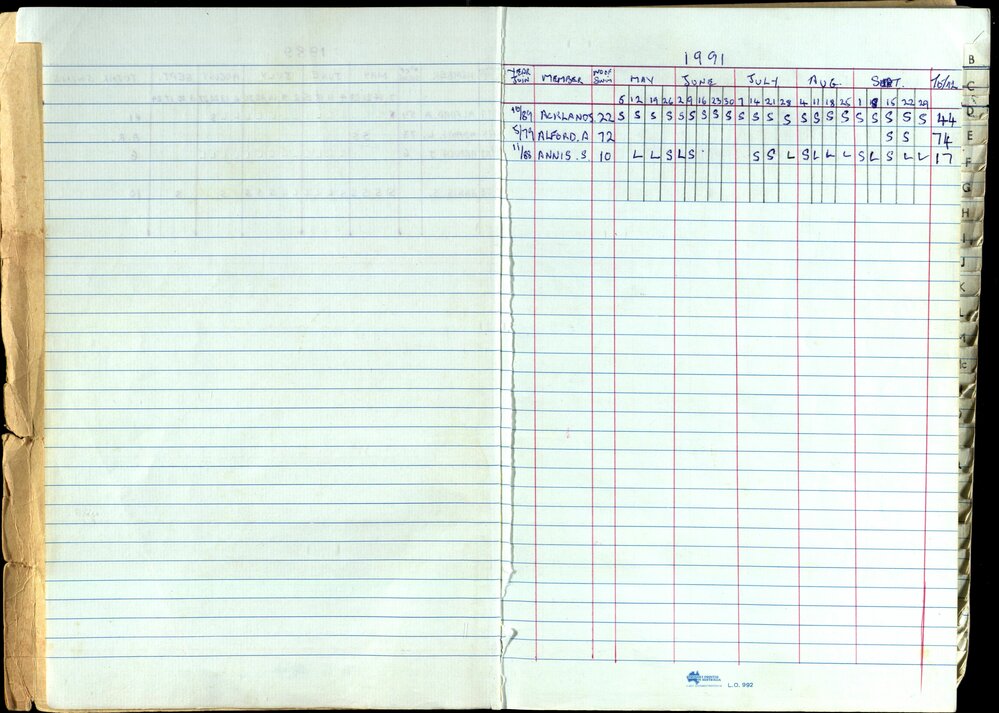 1991
YEAR JOIN MEMBER NO OF SWIM MAY JUNE JULY AUG SEPT. TOTAL
5 12 19 26 2 9 16 23 30 7 14 21 28 4 11 18 25 1 8 15 22 29
10/89 ACKLAND S 22 S S S S S S S S S S S S S S S S S S S S S S 44
5/79 ALFORD. A 72 S S 74
11/88 ANNIS. S 10 L L S L S S S L S L L L S L S L L 17
B
C
D
E
F
G
H
I
J
K
L
M
L.O. 992